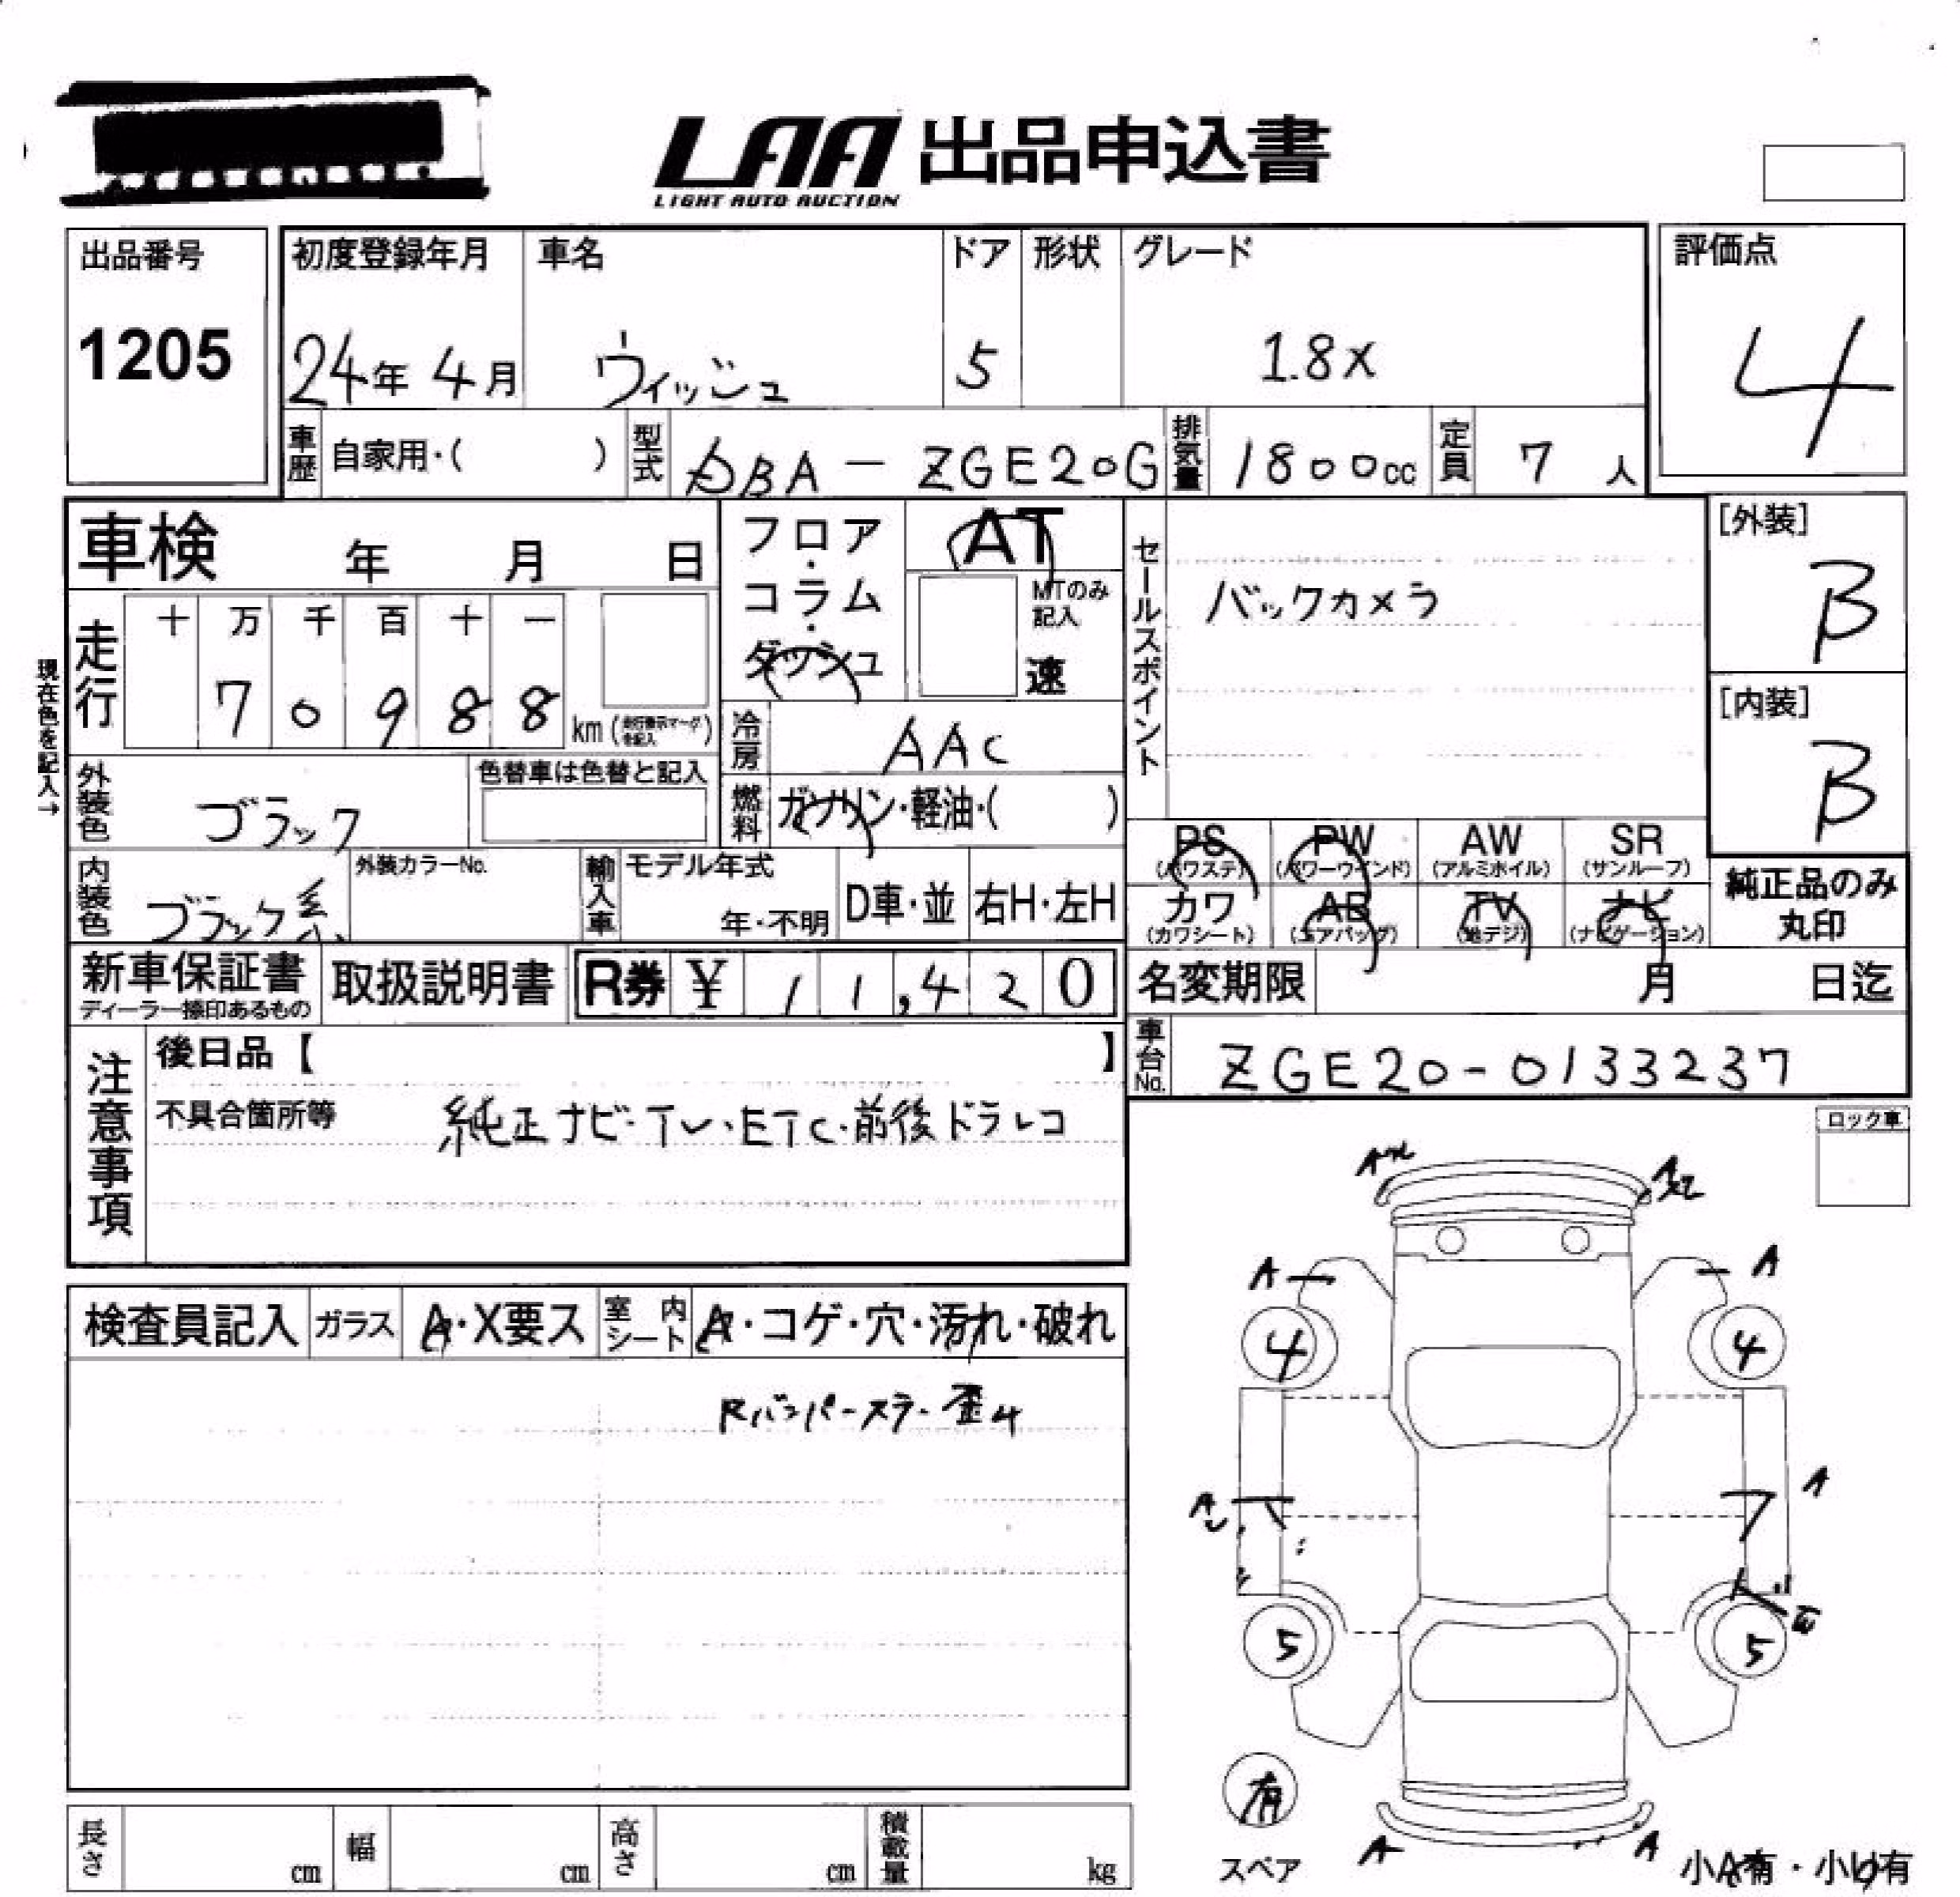 LAA 出品申込書
LIGHT AUTO AUCTION
出品番号
1205
初度登録年月
24年 4月
車名
ウィッシュ
ドア
5
形状
グレード
1.8X
評価点
4
車歴 自家用・( )
型式 DBA - ZGE20G
排気量 1800cc
定員 7 人
車検 年 月 日
フロア・コラム・ダッシュ
AT
MTのみ記入
速
セールスポイント
バックカメラ
[外装]
B
[内装]
B
現在色を記入→
走行
十 万 千 百 十 一
7 0 9 8 8 km
冷房 AAC
外装色 ブラック
色替車は色替と記入
燃料 ガソリン・軽油・( )
PS (パワステ)
PW (パワーウインド)
AW (アルミホイル)
SR (サンルーフ)
内装色 ブラック系
外装カラーNo.
輸入車
モデル年式
年・不明
D車・並
右H・左H
カワ (カワシート)
AB (エアバッグ)
TV (地デジ)
ナビ (ナビゲーション)
純正品のみ丸印
新車保証書
ディーラー捺印あるもの
取扱説明書
R券 ¥ 11,420
名変期限 月 日迄
注意事項
後日品【 】
車台No. ZGE20-0133237
不具合箇所等 純正ナビ・TV・ETC・前後ドラレコ
ロック車
検査員記入
ガラス A・X要ス
室内シート A・コゲ・穴・汚れ・破れ
Rバンパースラ・歪4
A
A
A
A
4
4
A
A
5
5
有
スペア
A
A
小A有・小U有
長さ cm
幅 cm
高さ cm
積載量 kg